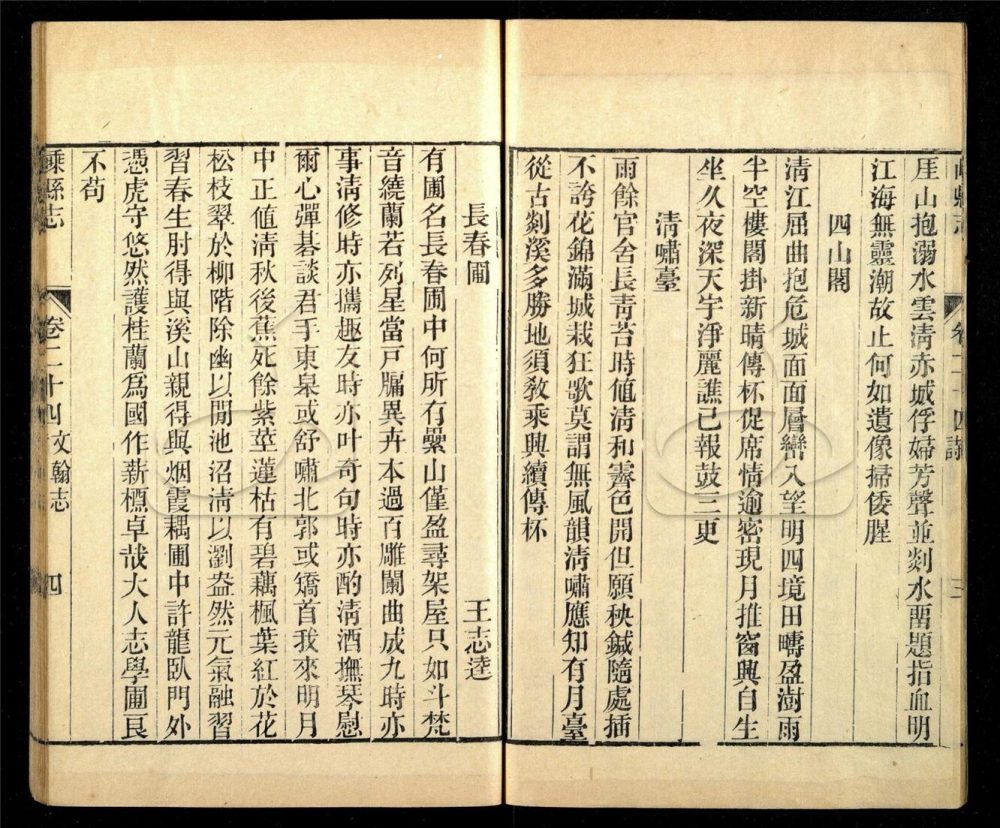 嵊縣志 卷二十四
厓山抱溺水雲淸赤城俘婦芳聲並剡水囓題指血明
江海無靈潮故止何如遺像掃倭腥
四山閣
淸江屈曲抱危城面面層巒入望明四境田疇盈澍雨
半空樓閣掛新晴傳杯促席情逾密現月推窗興自生
坐久夜深天宇淨麗譙已報鼓三更
淸嘯臺
雨餘官舍長靑苔時値淸和霽色開但願秧鍼隨處插
不誇花錦滿城栽狂歌莫謂無風韻淸嘯應知有月臺
從古剡溪多勝地須敎乘興續傳杯
長春圃 王志逵
有圃名長春圃中何所有纍山僅盈尋架屋只如斗梵
音繞蘭若列星當戸牖異卉本過百雕闌曲成九時亦
事淸修時亦攜趣友時亦叶奇句時亦酌淸酒撫琴慰
爾心彈碁談君手東臯或舒嘯北郭或矯首我來明月
中正値淸秋後蕉死餘紫莖蓮枯有碧藕楓葉紅於花
松枝翠於柳階除幽以閒池沼淸以瀏盎然元氣融習
習春生肘得與溪山親得與烟霞耦圃中許龍臥門外
憑虎守悠然護桂蘭爲國作薪槱卓哉大人志學圃良
不苟
嵊縣志 卷二十四 文翰志 四